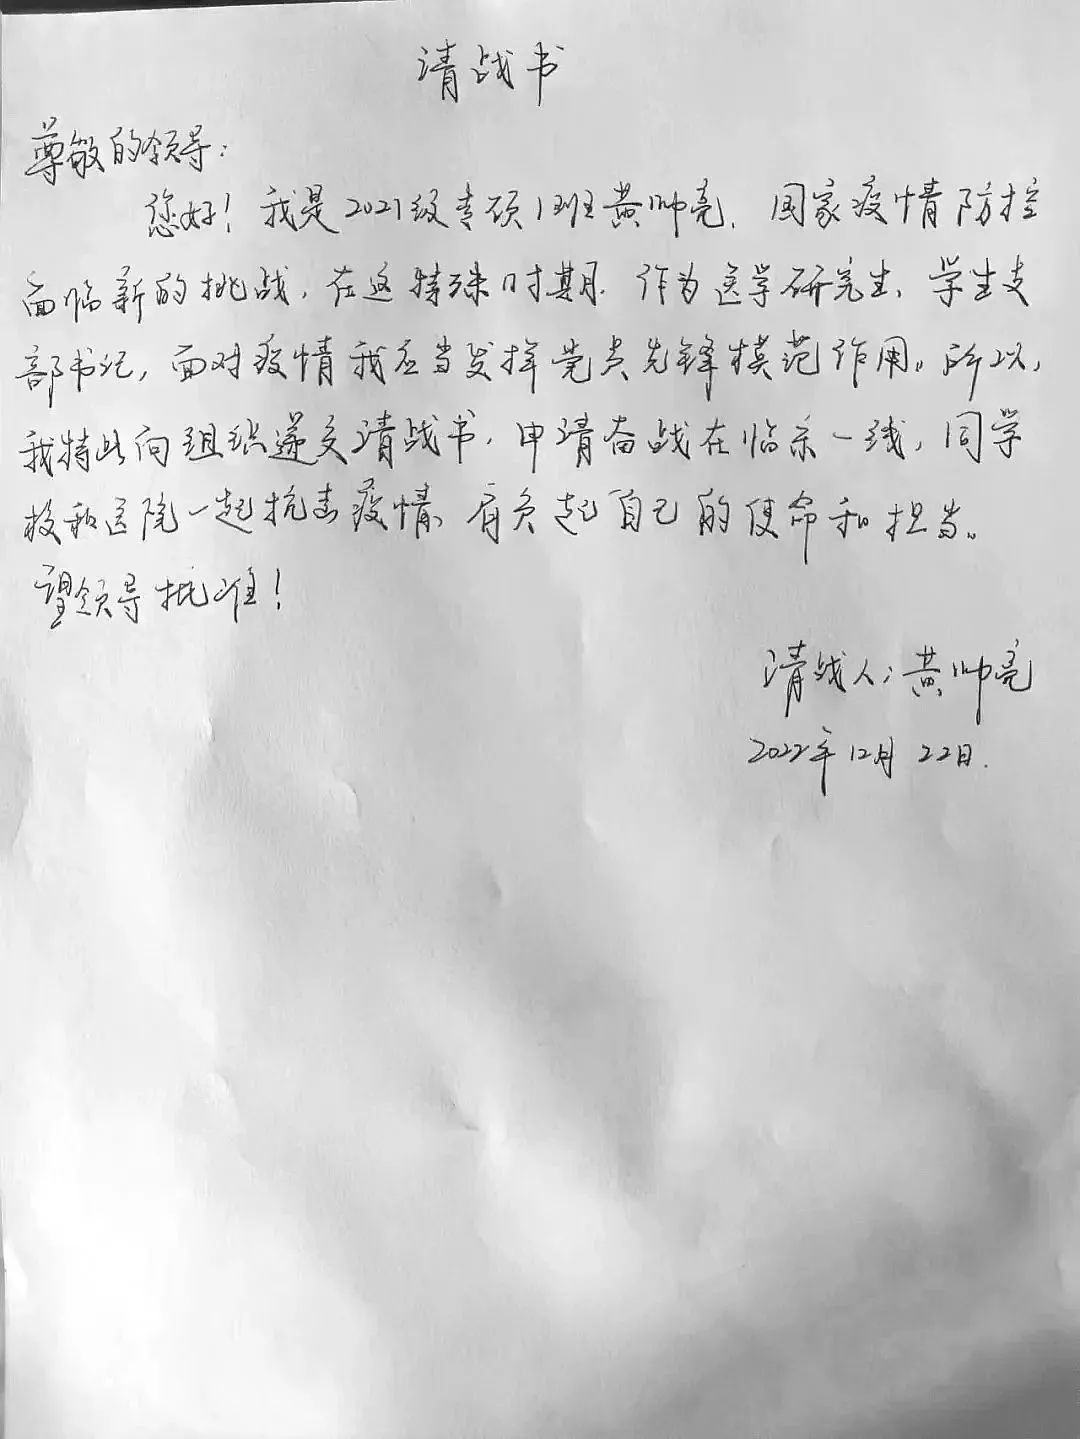 请战书
尊敬的领导：
您好！我是2021级专硕1班黄帅亮．国家疫情防控
面临新的挑战，在这特殊时期．作为医学研究生、学生支
部书记，面对疫情我应当发挥党员先锋模范作用。所以，
我特此向组织递交请战书，申请奋战在临床一线，同学
校和医院一起抗击疫情、肩负起自己的使命和担当。
望领导批准！
请战人：黄帅亮
2022年12月22日．